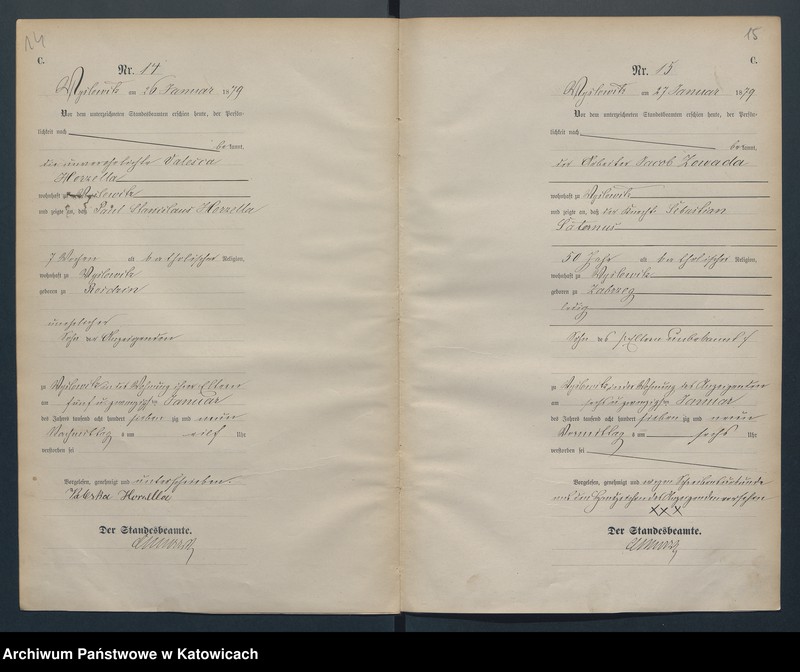 14
C.
Nr. 14
Wyslowitz am 26 Januar 1879
Vor dem unterzeichneten Standesbeamten erschien heute, der Persön-
lichkeit nach
be kannt,
die unverehelichte Valesca
Horzella
wohnhaft zu
und zeigte an, daß Paul Stanislaus Horzella
7 Wochen alt katholischer Religion,
wohnhaft zu
geboren zu Rosdzin
unehelicher
Sohn der Anzeigenden
zu in der Wohnung ihrer Eltern
am fünf u zwanzigsten Januar
des Jahres tausend acht hundert sieben zig und neun
Nachmittag s um eilf Uhr
verstorben sei
Vorgelesen, genehmigt und unterschrieben.
Valeska Horzella
Der Standesbeamte.
15
C.
Nr. 15
am 27 Januar 1879
Vor dem unterzeichneten Standesbeamten erschien heute, der Persön-
lichkeit nach
be kannt,
der Arbeiter Jacob Zowada
wohnhaft zu
und zeigte an, daß der Knecht Sebastian
Saternus
50 Jahr alt katholischer Religion,
wohnhaft zu
geboren zu Zabrzeg
ledig
Sohn des (Eltern unbekannt)
zu in der Wohnung des Anzeigenden
am sechs u zwanzigsten Januar
des Jahres tausend acht hundert sieben zig und neun
Vormittag s um sechs Uhr
verstorben sei
Vorgelesen, genehmigt und wegen Schreibensunkunde
mit den Handzeichen des Anzeigenden versehen
XXX
Der Standesbeamte.
Archiwum Państwowe w Katowicach